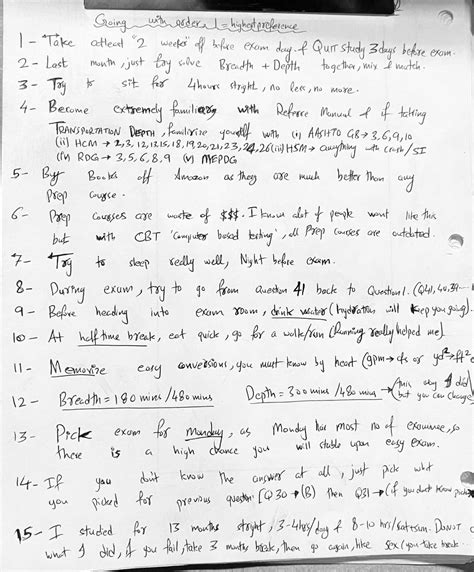 Going with order 1 = highest preference
1 - Take atleast "2 weeks" off before exam day & QUIT study 3 days before exam.
2 - Last month, just try solve Breadth + Depth together, mix & match.
3 - Try to sit for 4 hours straight, no less, no more.
4 - Become extremely familiar with Reference Manual & if taking
TRANSPORTATION DEPTH, familiarize yourself with (i) AASHTO GB → 3, 6, 9, 10
(ii) HCM → 2, 3, 12, 13, 15, 18, 19, 20, 21, 23, 24, 26 (iii) HSM → anything with crash/SI
(iv) RDG → 3, 5, 6, 8, 9 (v) MEPDG
5 - Buy Books off Amazon as they are much better than any
Prep course.
6 - Prep courses are waste of $$$. I know alot of people wont like this
but with CBT 'Computer based testing', all Prep courses are outdated.
7 - Try to sleep really well, Night before exam.
8 - During exam, try to go from question 41 back to Question 1. (Q41, 40, 39...
9 - Before heading into exam room, drink water (hydration will keep you going).
10 - At half time break, eat quick, go for a walk/run (Running really helped me)
11 - Memorize easy conversions, you must know by heart (gpm → cfs or yd² → ft²
12 - Breadth = 180 mins / 480 mins Depth = 300 mins / 480 mins → (this way I did
but you can change
13 - Pick exam for Monday, as Monday has most no of examinee, so
there is a high chance you will stable upon easy exam.
14 - If you don't know the answer at all, just pick what
you picked for previous question [Q30 → (B) then Q31 → (if you dont know pick
15 - I studied for 13 months straight, 3-4 hrs/day & 8-10 hrs/ DO NOT
what I did, if you fail, take 3 months break, then go again, like sex (you take break